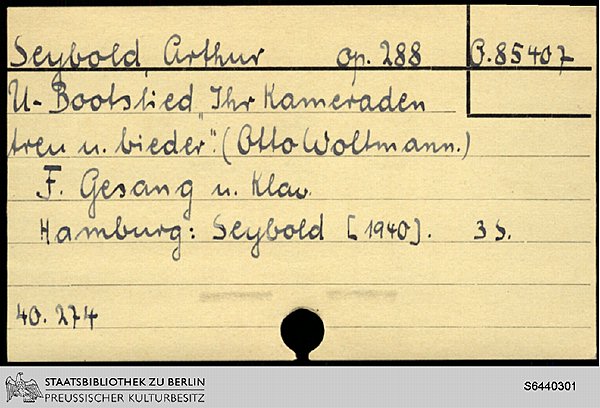 Seybold, Arthur op. 288 O.85407
U-Bootslied "Ihr Kameraden
treu u. bieder". (Otto Woltmann.)
F. Gesang u. Klav.
Hamburg: Seybold [1940]. 3 S.
40. 274
STAATSBIBLIOTHEK ZU BERLIN
PREUSSISCHER KULTURBESITZ
S6440301